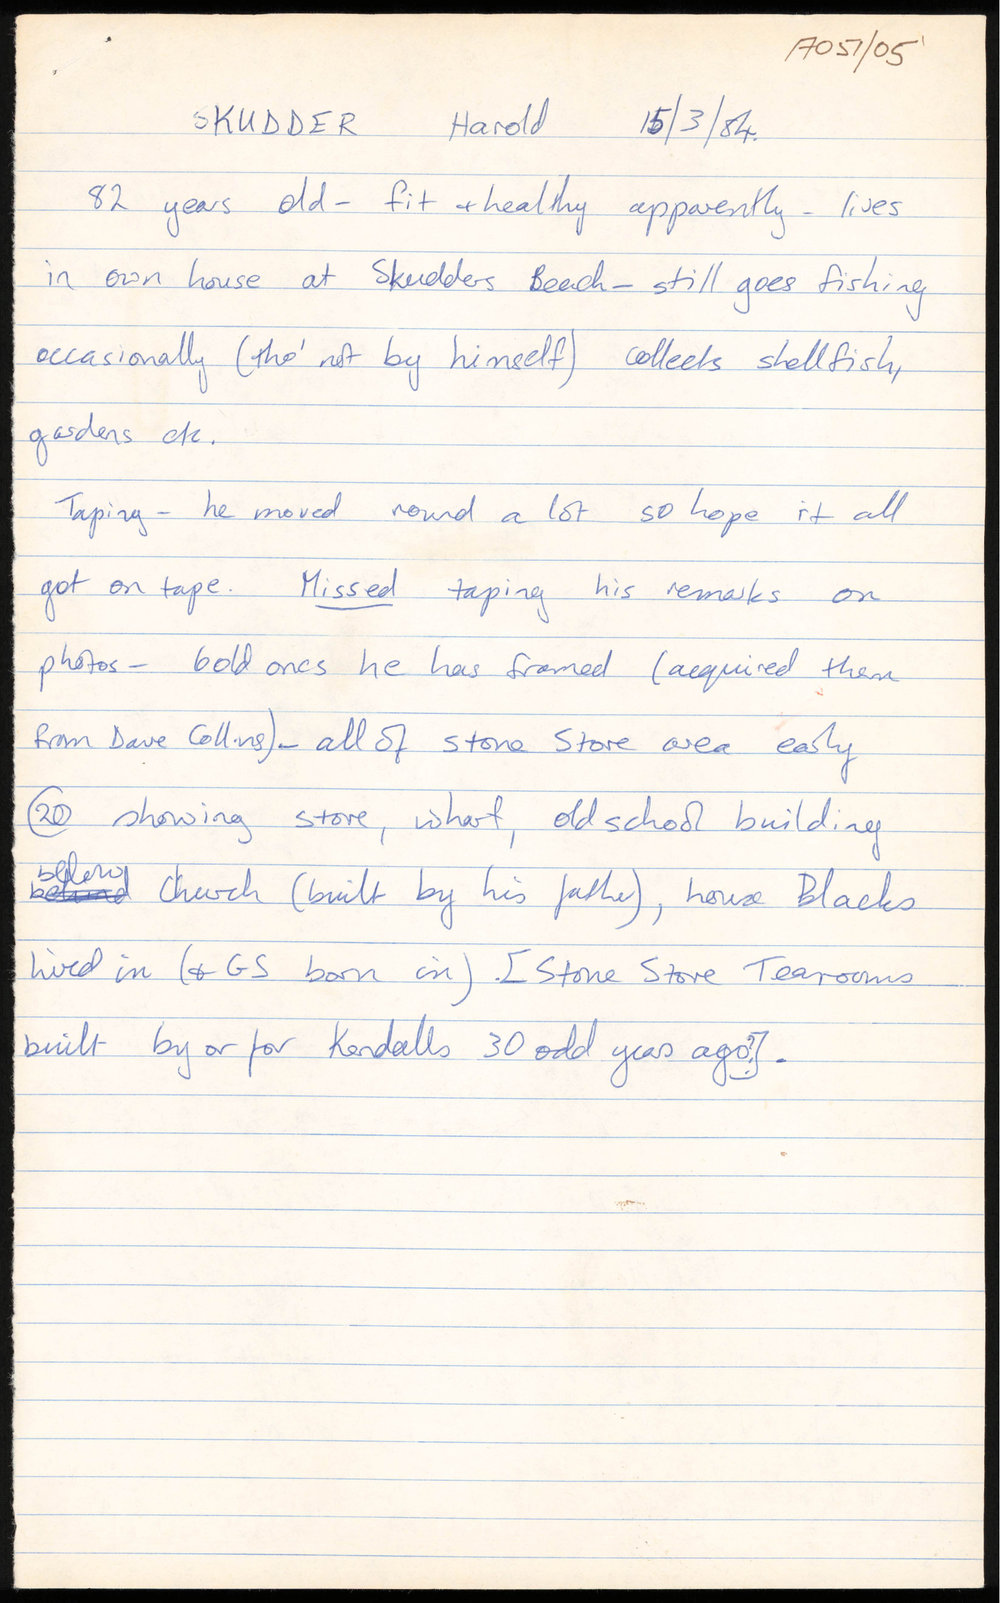 A051/05
SKUDDER Harold 15/3/84.
82 years old - fit + healthy apparently - lives
in own house at Skudders Beach - still goes fishing
occasionally (tho' not by himself) collects shellfish,
gardens etc.
Taping - he moved round a lot so hope it all
got on tape. Missed taping his remarks on
photos - 6 old ones he has framed (acquired them
from Dave Collins) - all of Stone Store area early
20 showing store, wharf, old school building
below
behind Church (built by his father), house Blacks
lived in (& GS born in). [Stone Store Tearooms
built by or for Kendalls 30 odd years ago?].